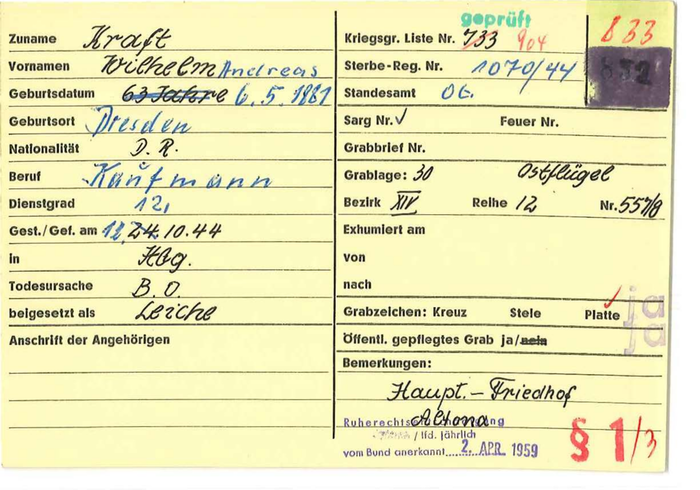 Zuname Kraft
Vornamen Wilhelm Andreas
Geburtsdatum 63 Jahre 6.5.1881
Geburtsort Dresden
Nationalität D.R.
Beruf Kaufmann
Dienstgrad 12,
Gest./Gef. am 12, 24.10.44
in Hbg.
Todesursache B.O.
beigesetzt als Leiche
Anschrift der Angehörigen
geprüft
Kriegsgr. Liste Nr. 733 904
833
Sterbe-Reg. Nr. 1070/44
Standesamt Ot.
Sarg Nr. Feuer Nr.
Grabbrief Nr.
Grablage: 30 Ostflügel
Bezirk XIV Reihe 12 Nr. 557/8
Exhumiert am
von
nach
Grabzeichen: Kreuz Stele Platte ja
Öffentl. gepflegtes Grab ja/nein ja
Bemerkungen:
Haupt.-Friedhof
Altona
lfd. jährlich
vom Bund anerkannt 2. APR. 1959
§ 1/3